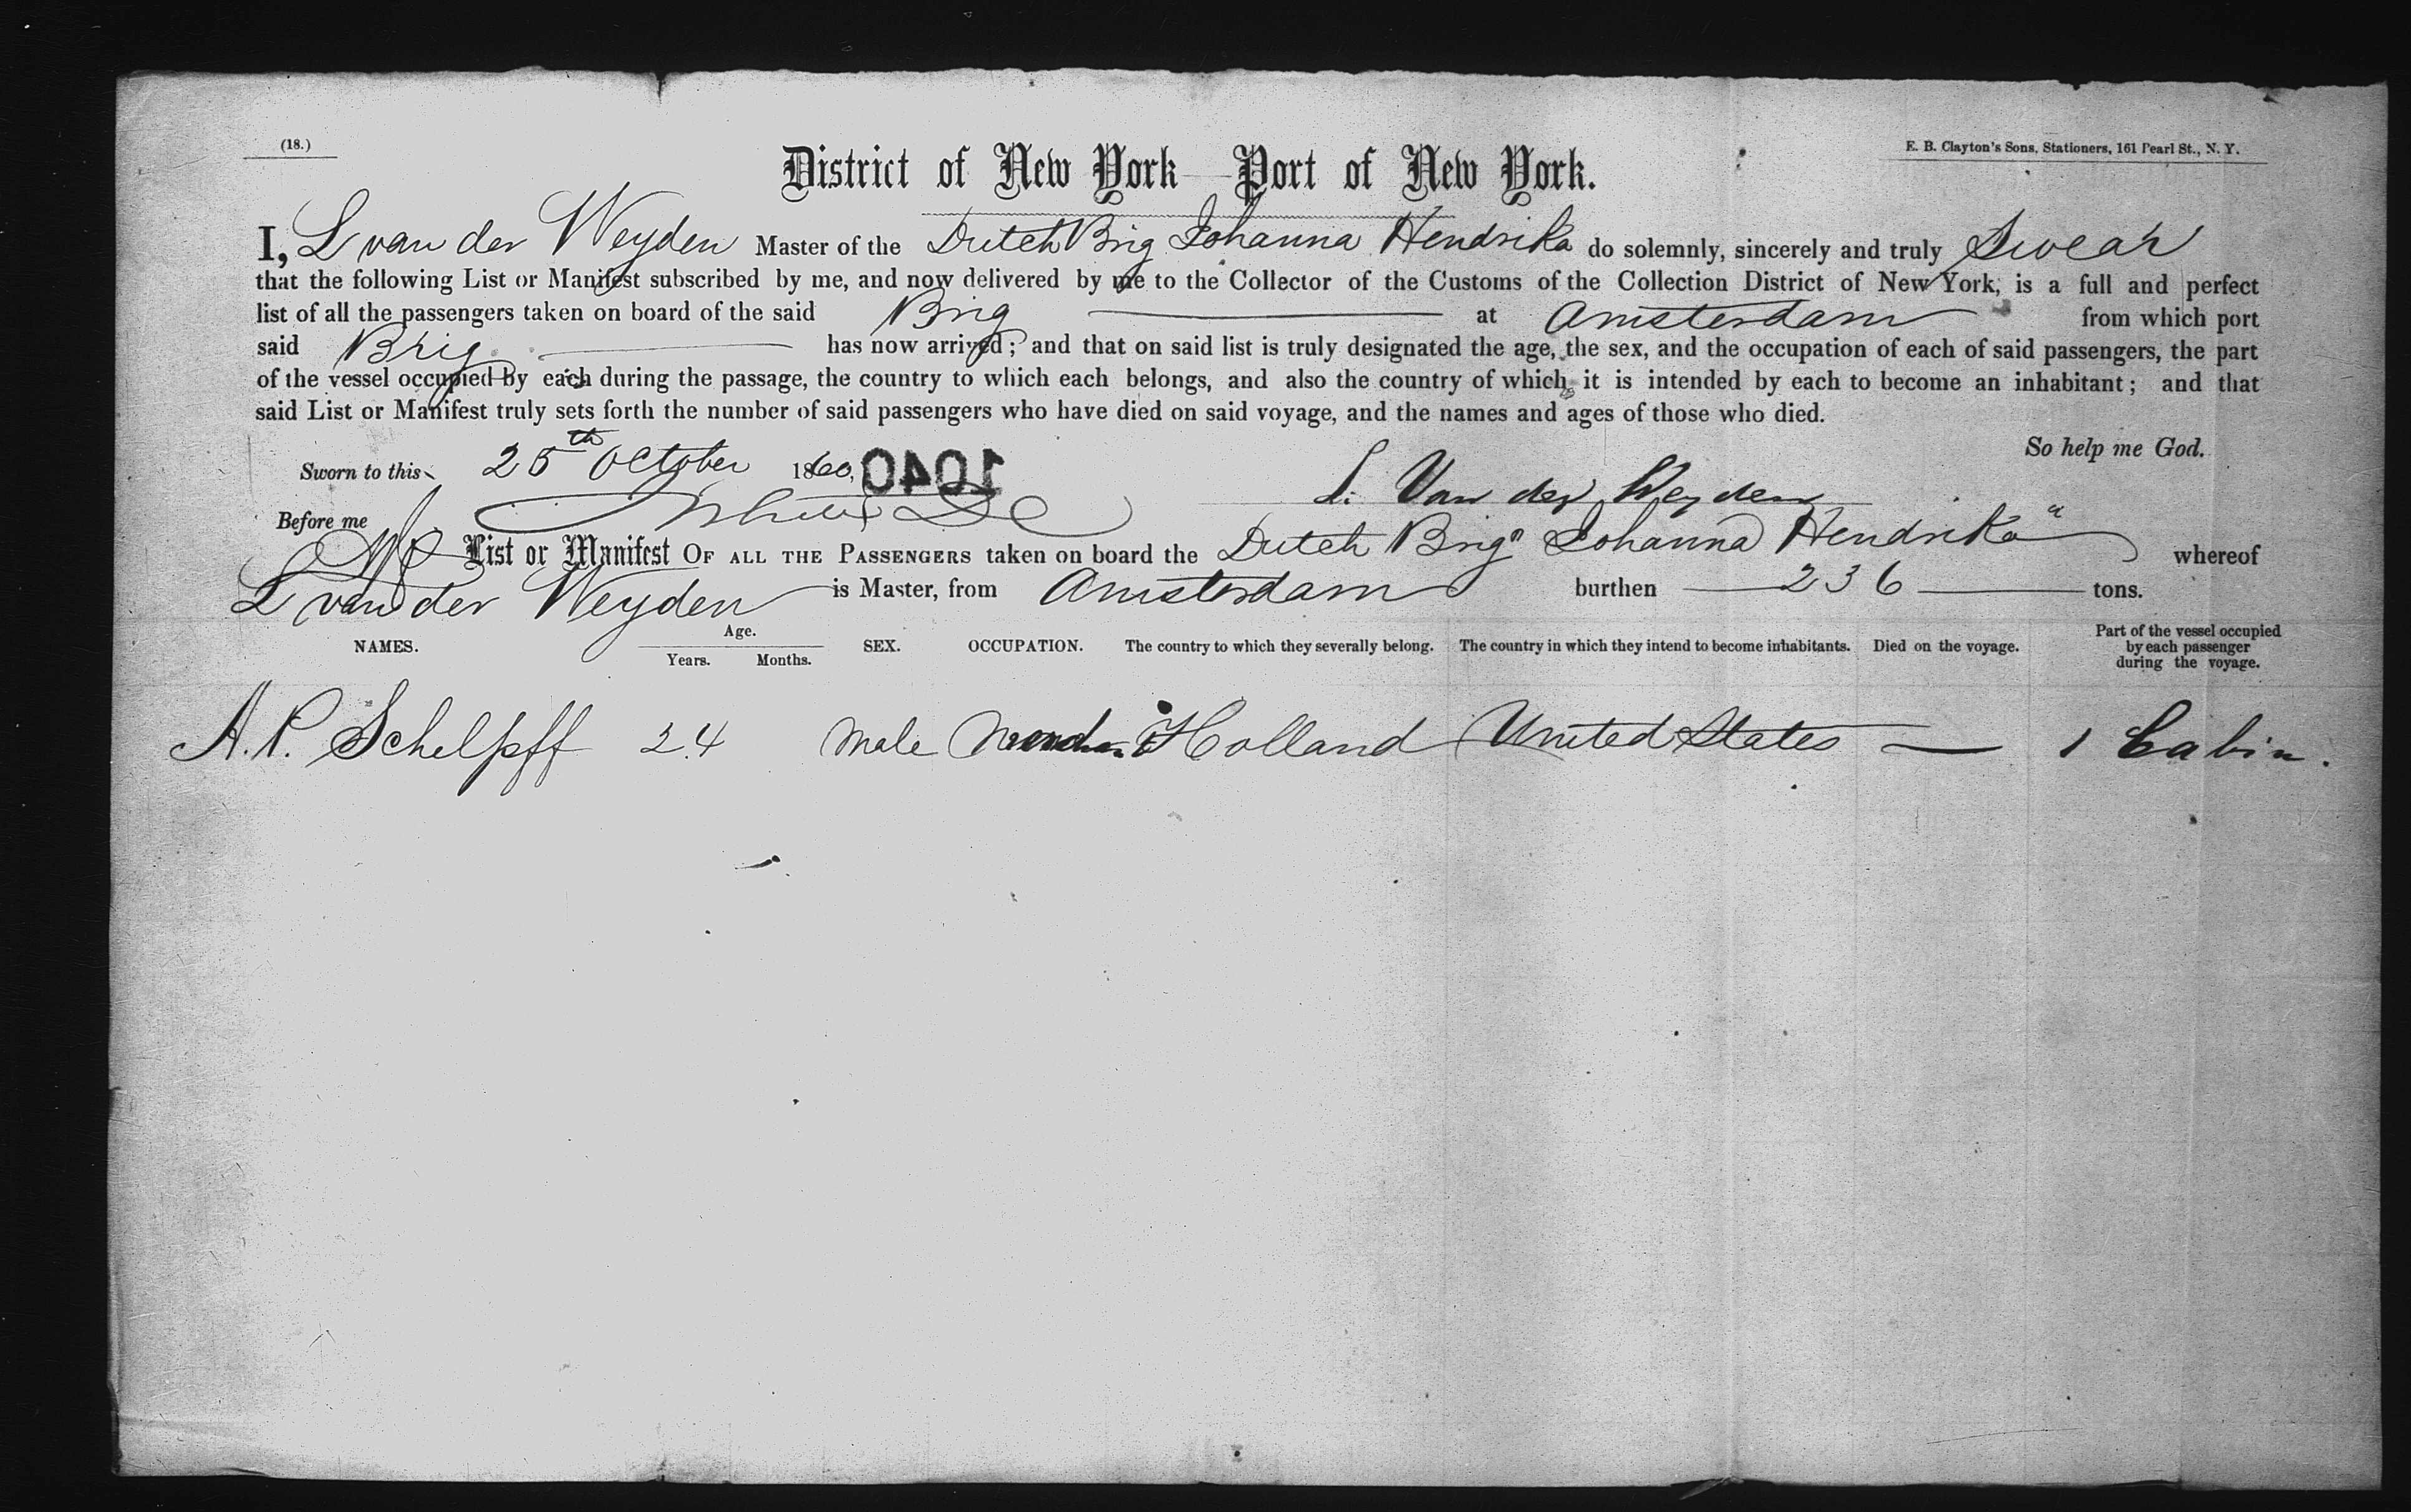 (18.)
E. B. Clayton's Sons, Stationers, 161 Pearl St., N. Y.
District of New York — Port of New York.
I, L van der Weyden Master of the Dutch Brig Johanna Hendrika do solemnly, sincerely and truly Swear
that the following List or Manifest subscribed by me, and now delivered by me to the Collector of the Customs of the Collection District of New York, is a full and perfect
list of all the passengers taken on board of the said Brig at Amsterdam from which port
said Brig has now arrived; and that on said list is truly designated the age, the sex, and the occupation of each of said passengers, the part
of the vessel occupied by each during the passage, the country to which each belongs, and also the country of which it is intended by each to become an inhabitant; and that
said List or Manifest truly sets forth the number of said passengers who have died on said voyage, and the names and ages of those who died.
So help me God.
Sworn to this 25th October 1860, 1040
L. Van der Weyden
Before me
List or Manifest OF ALL THE PASSENGERS taken on board the Dutch Brig "Johanna Hendrika" whereof
L van der Weyden is Master, from Amsterdam burthen 236 tons.
NAMES. Age. Years. Months. SEX. OCCUPATION. The country to which they severally belong. The country in which they intend to become inhabitants. Died on the voyage. Part of the vessel occupied by each passenger during the voyage.
A. P. Schelpff 24 Male Holland United States — 1 Cabin.